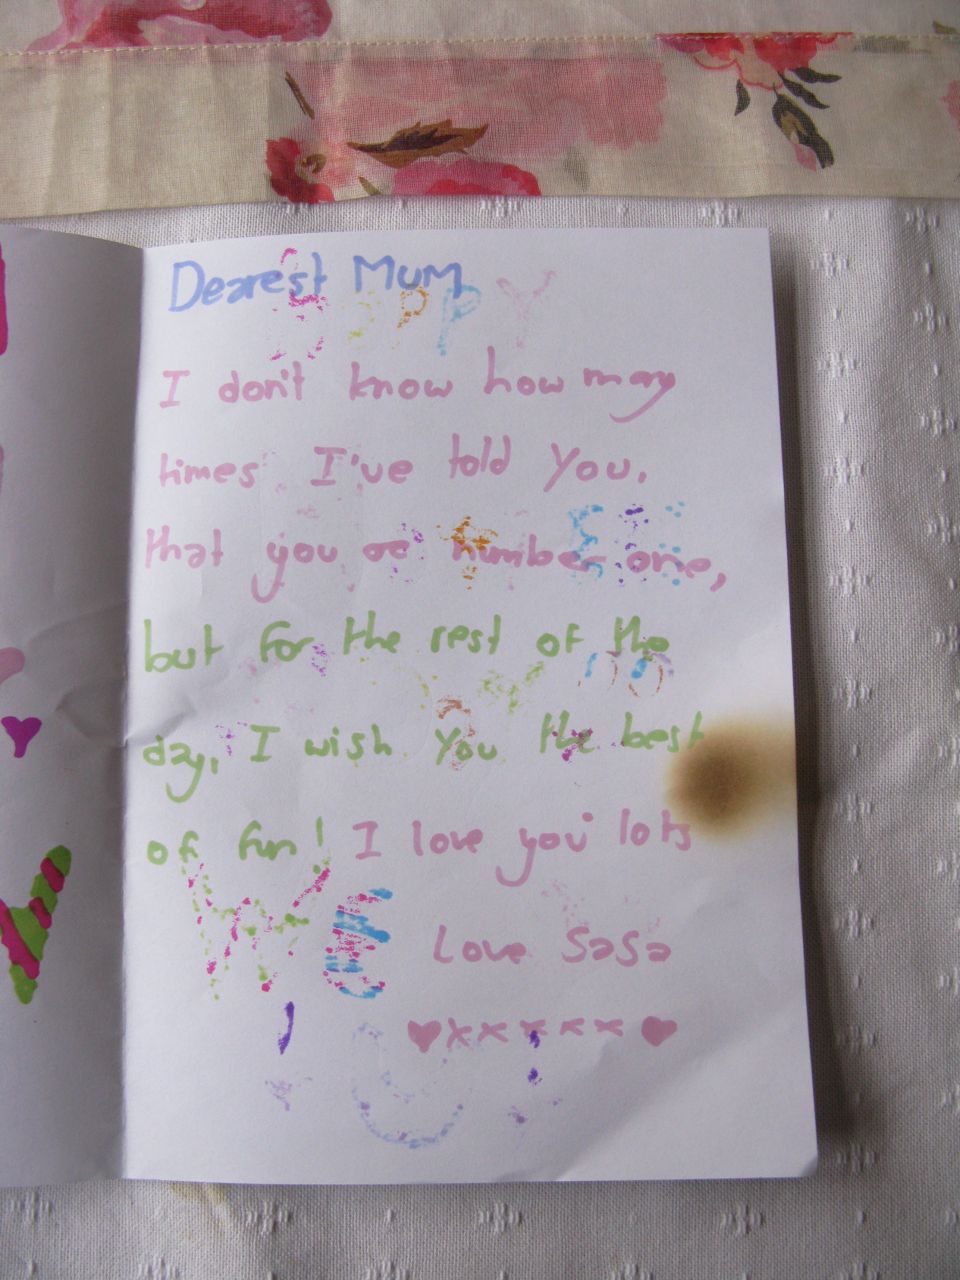 Dearest Mum
I don't know how may
times I've told You,
that you are number one,
but for the rest of the
day, I wish You the best
of fun! I love you lots
Love SaSa
♥xxxxx♥